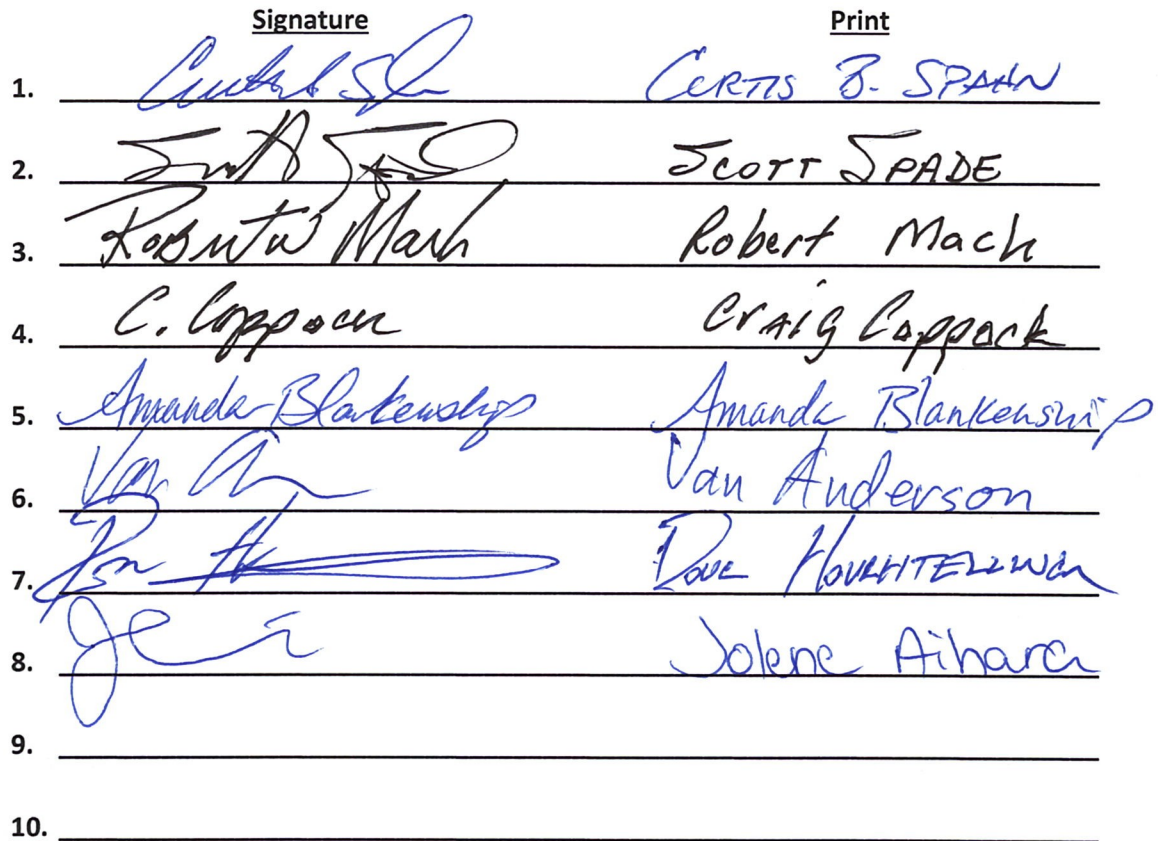 Signature Print
1. Curtis B. Spahn
2. Scott Spade SCOTT SPADE
3. Robert W Mach Robert Mach
4. C. Coppock Craig Coppock
5. Amanda Blankenship Amanda Blankenship
6. Van Van Anderson
7.
8. Jolene Aihara
9.
10.